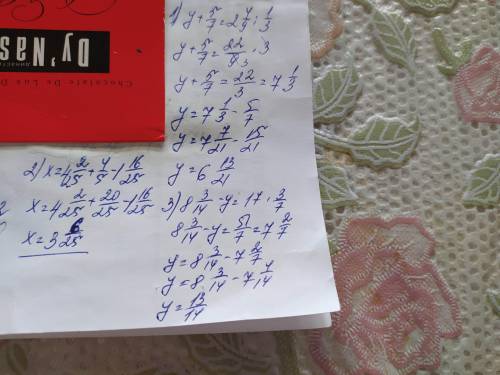 Dy'Nas
Chocolate De Lux D
династи
1) y + 5/7 = 2 4/9 : 1/3
y + 5/7 = 22/9 · 3
y + 5/7 = 22/3 = 7 1/3
y = 7 1/3 - 5/7
y = 7 7/21 - 15/21
y = 6 13/21
2) x = 4 2/25 + 4/5 - 1 16/25
x = 4 2/25 + 20/25 - 1 16/25
x = 3 6/25
3) 8 3/14 - y = 17 · 3/7
8 3/14 - y = 51/7 = 7 2/7
y = 8 3/14 - 7 2/7
y = 8 3/14 - 7 4/14
y = 13/14